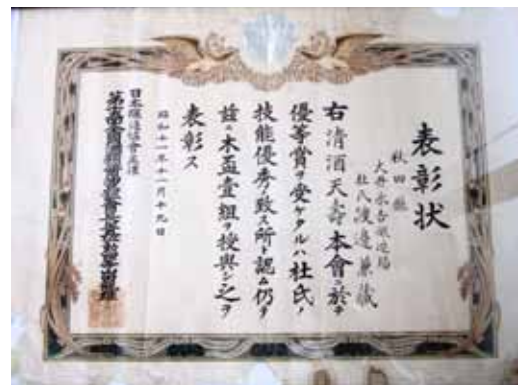 表彰状
秋田縣
大井永吉釀造場
杜氏 渡邉兼蔵
右清酒天壽本會ニ於テ
優等賞ヲ受ケタルハ杜氏ノ
技能優秀ノ致ス所ト認ム仍テ
玆ニ木盃壹組ヲ授與シ之ヲ
表彰ス
昭和十一年十一月十九日
日本釀造協會主催